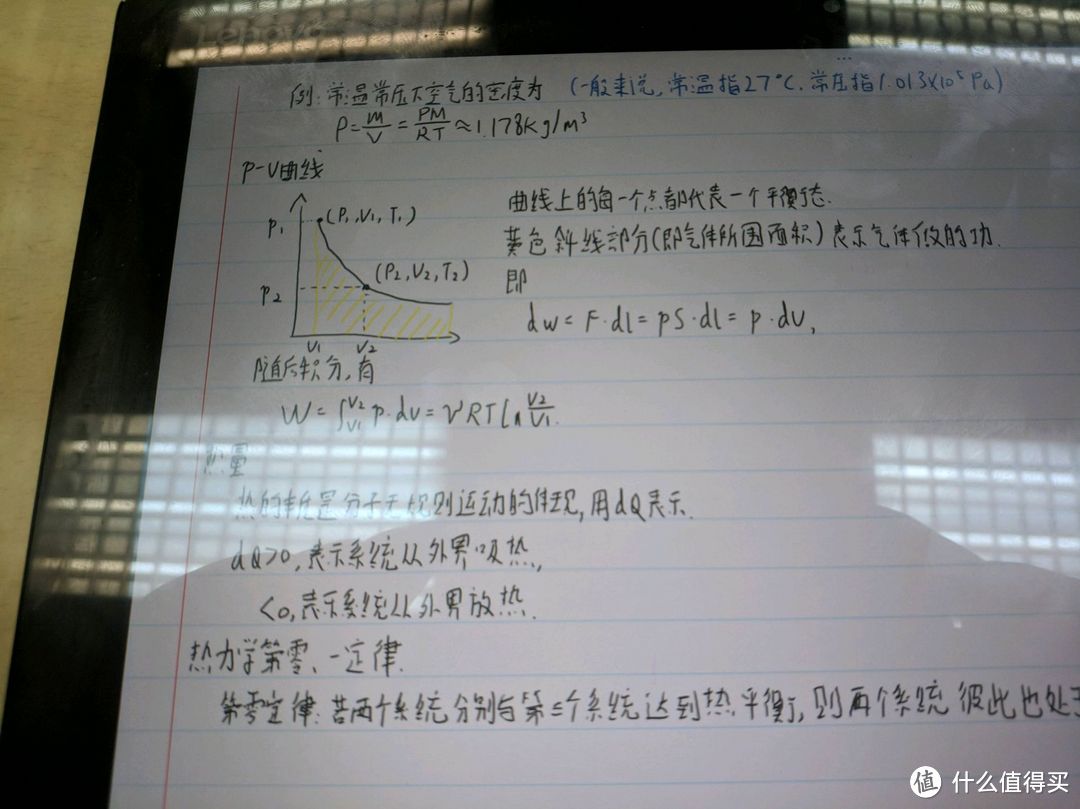 Lenovo
例:常温常压下空气的密度为 (一般来说,常温指27°C,常压指1.013×10⁵Pa)
ρ=m/V=PM/RT≈1.178kg/m³
P-V曲线
曲线上的每一个点都代表一个平衡态.
P₁ (P₁,V₁,T₁)
黄色斜线部分(即气体所围面积)表示气体做的功.
P₂ (P₂,V₂,T₂)
即
dw=F·dl=pS·dl=p·dV,
V₁ V₂
随后积分,有
W=∫V₁V₂ p·dv=νRT ln V₂/V₁.
热量
热的本质是分子无规则运动的体现,用dQ表示.
dQ>0,表示系统从外界吸热,
<0,表示系统从外界放热.
热力学第零、一定律.
第零定律:若两个系统分别与第三个系统达到热平衡,则两个系统彼此也处于
值 什么值得买